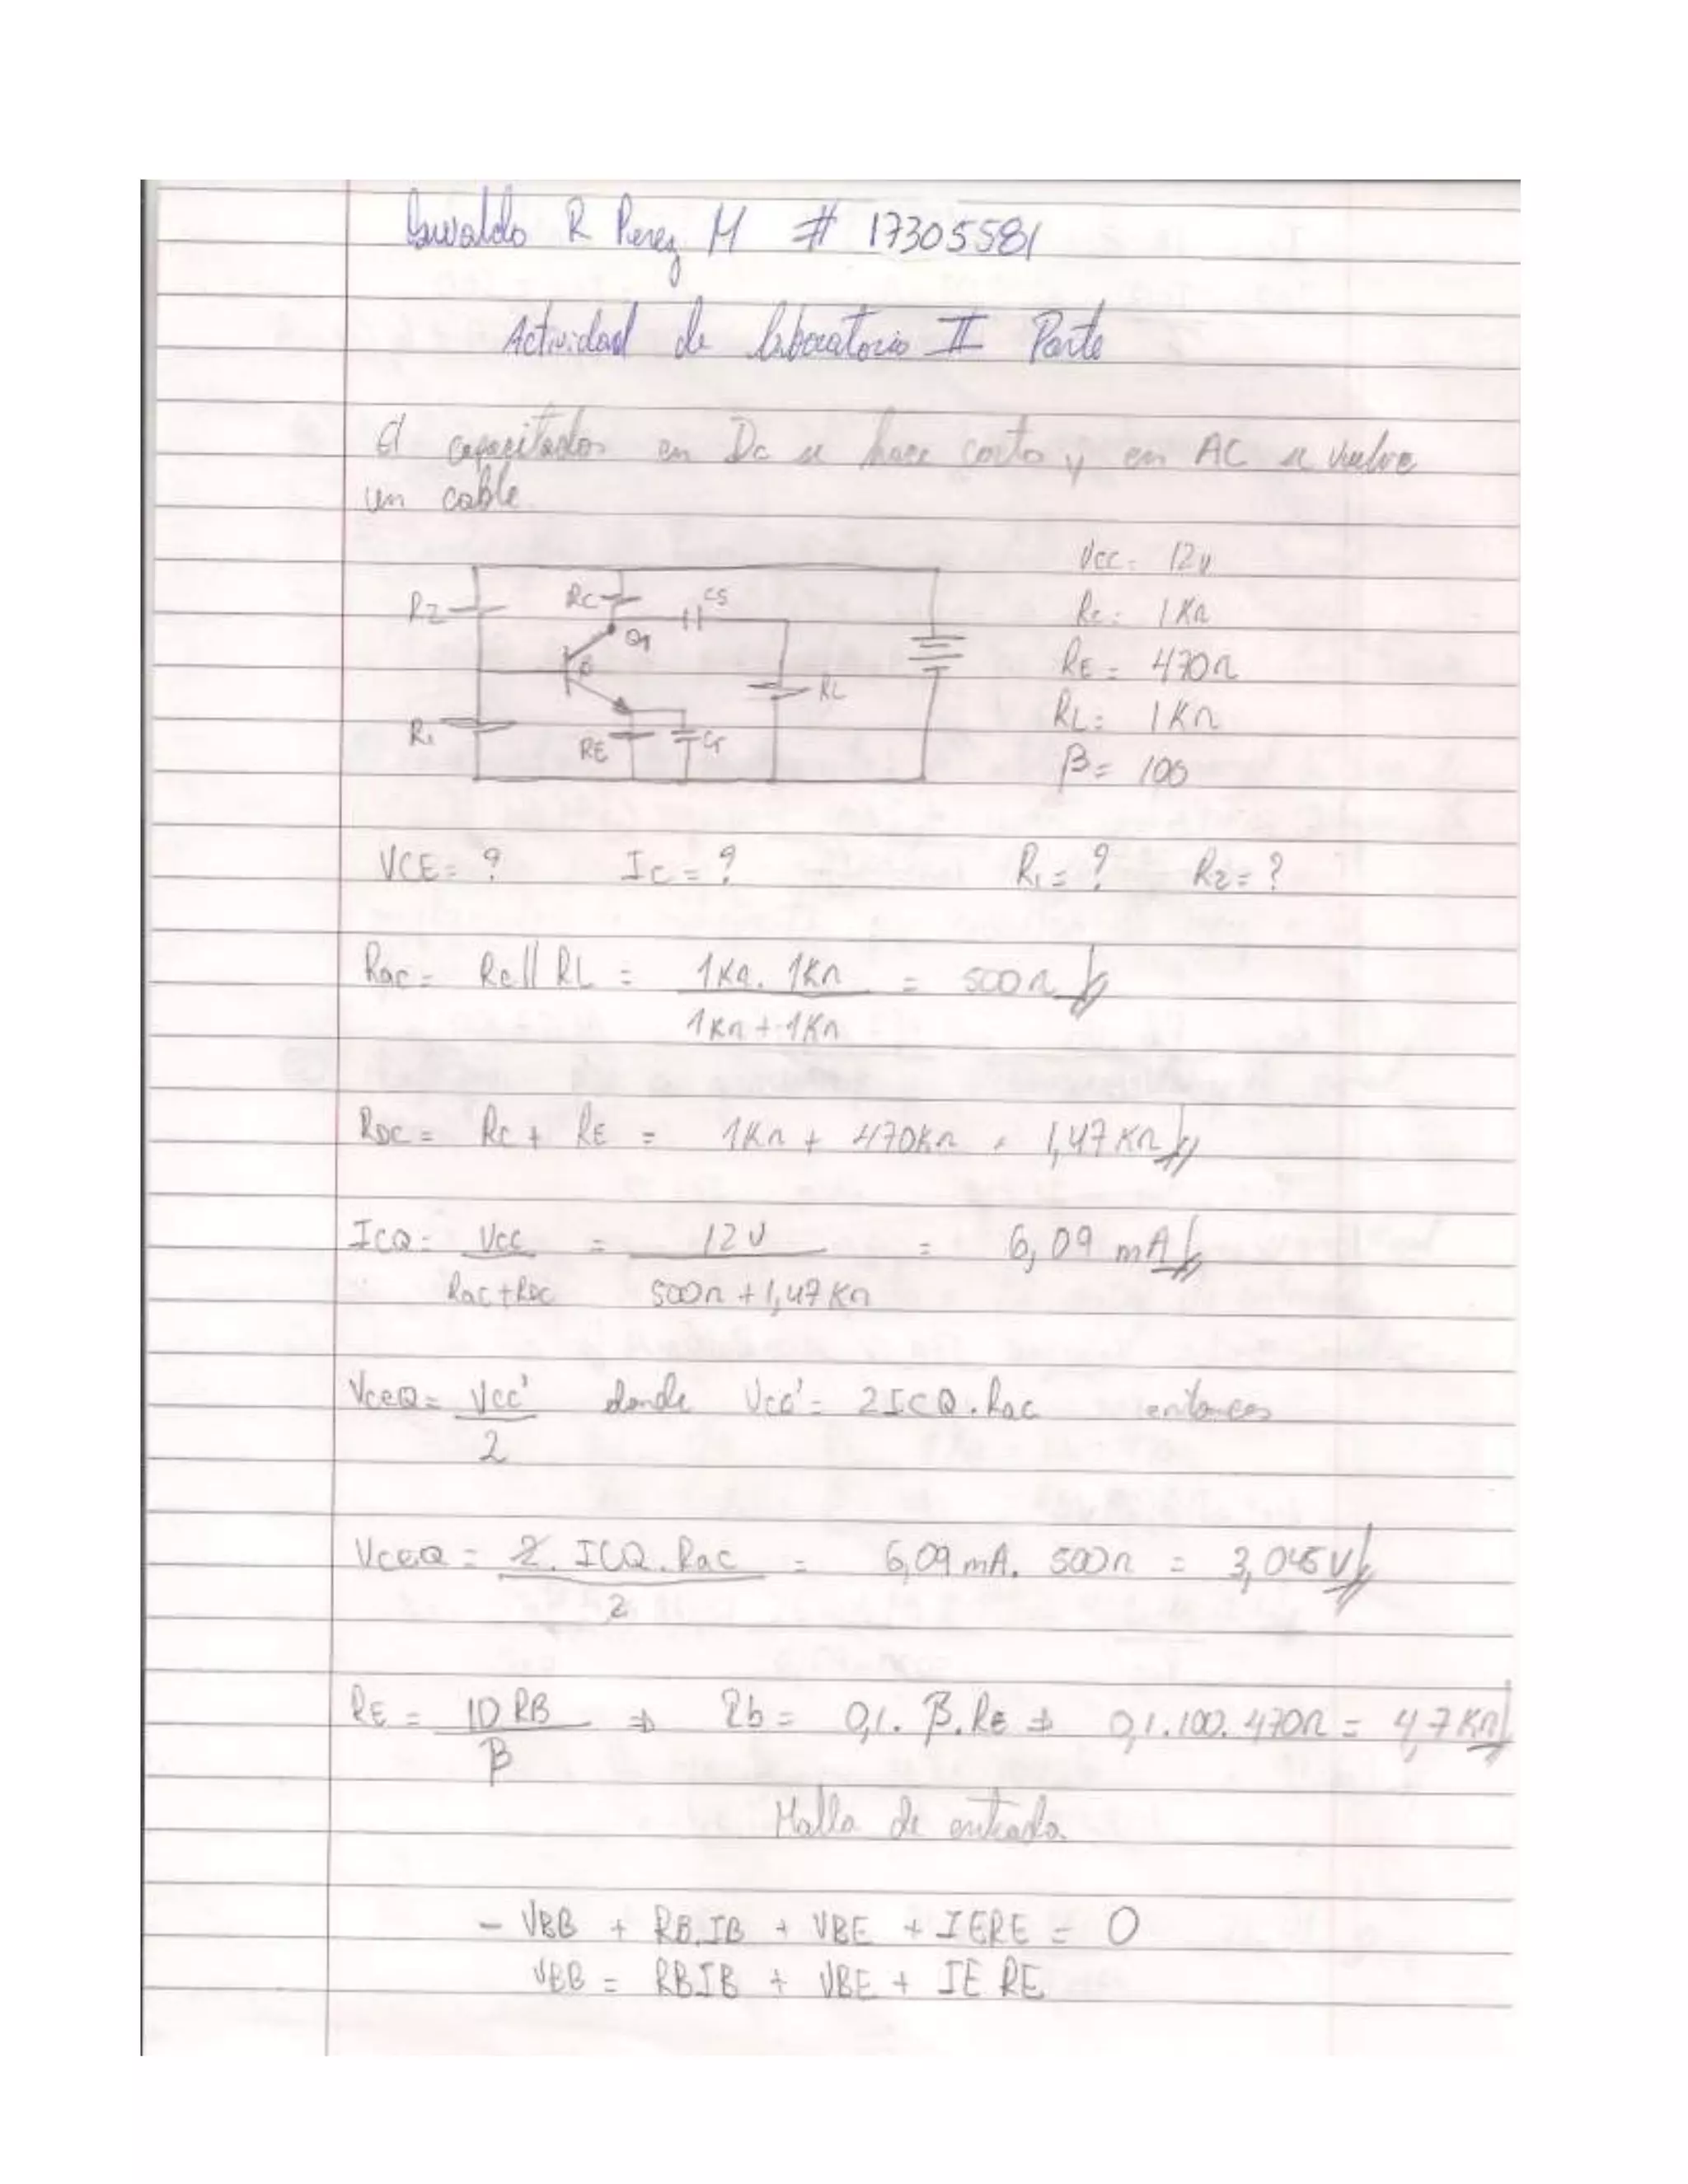 Oswaldo R Perez M # 17305581
Actividad de laboratorio II Parte
El capacitador en Dc se hace corto y en AC se vuelve
un cable.
Vcc = 12v
Rc = 1KΩ
RE = 470Ω
RL = 1KΩ
β = 100
R2
Rc
CS
Q1
B
RL
R1
RE
VCE = ? Ic = ? R1 = ? R2 = ?
Rac = Rc || RL = 1KΩ . 1KΩ = 500Ω
1KΩ + 1KΩ
RDC = Rc + RE = 1KΩ + 470KΩ = 1,47KΩ
ICQ = Vcc = 12V = 6,09 mA
Rac + RDC 500Ω + 1,47KΩ
VceQ = Vcc' donde Vcc' = 2ICQ . Rac entonces
2
VceQ = 2 . ICQ . Rac = 6,09 mA . 500Ω = 3,045V
2
RE = 10 RB ⇒ Rb = 0,1 . β . RE ⇒ 0,1 . 100 . 470Ω = 4,7KΩ
β
Malla de entrada
- VBB + RB.IB + VBE + IERE = 0
VBB = RBIB + VBE + IE RE